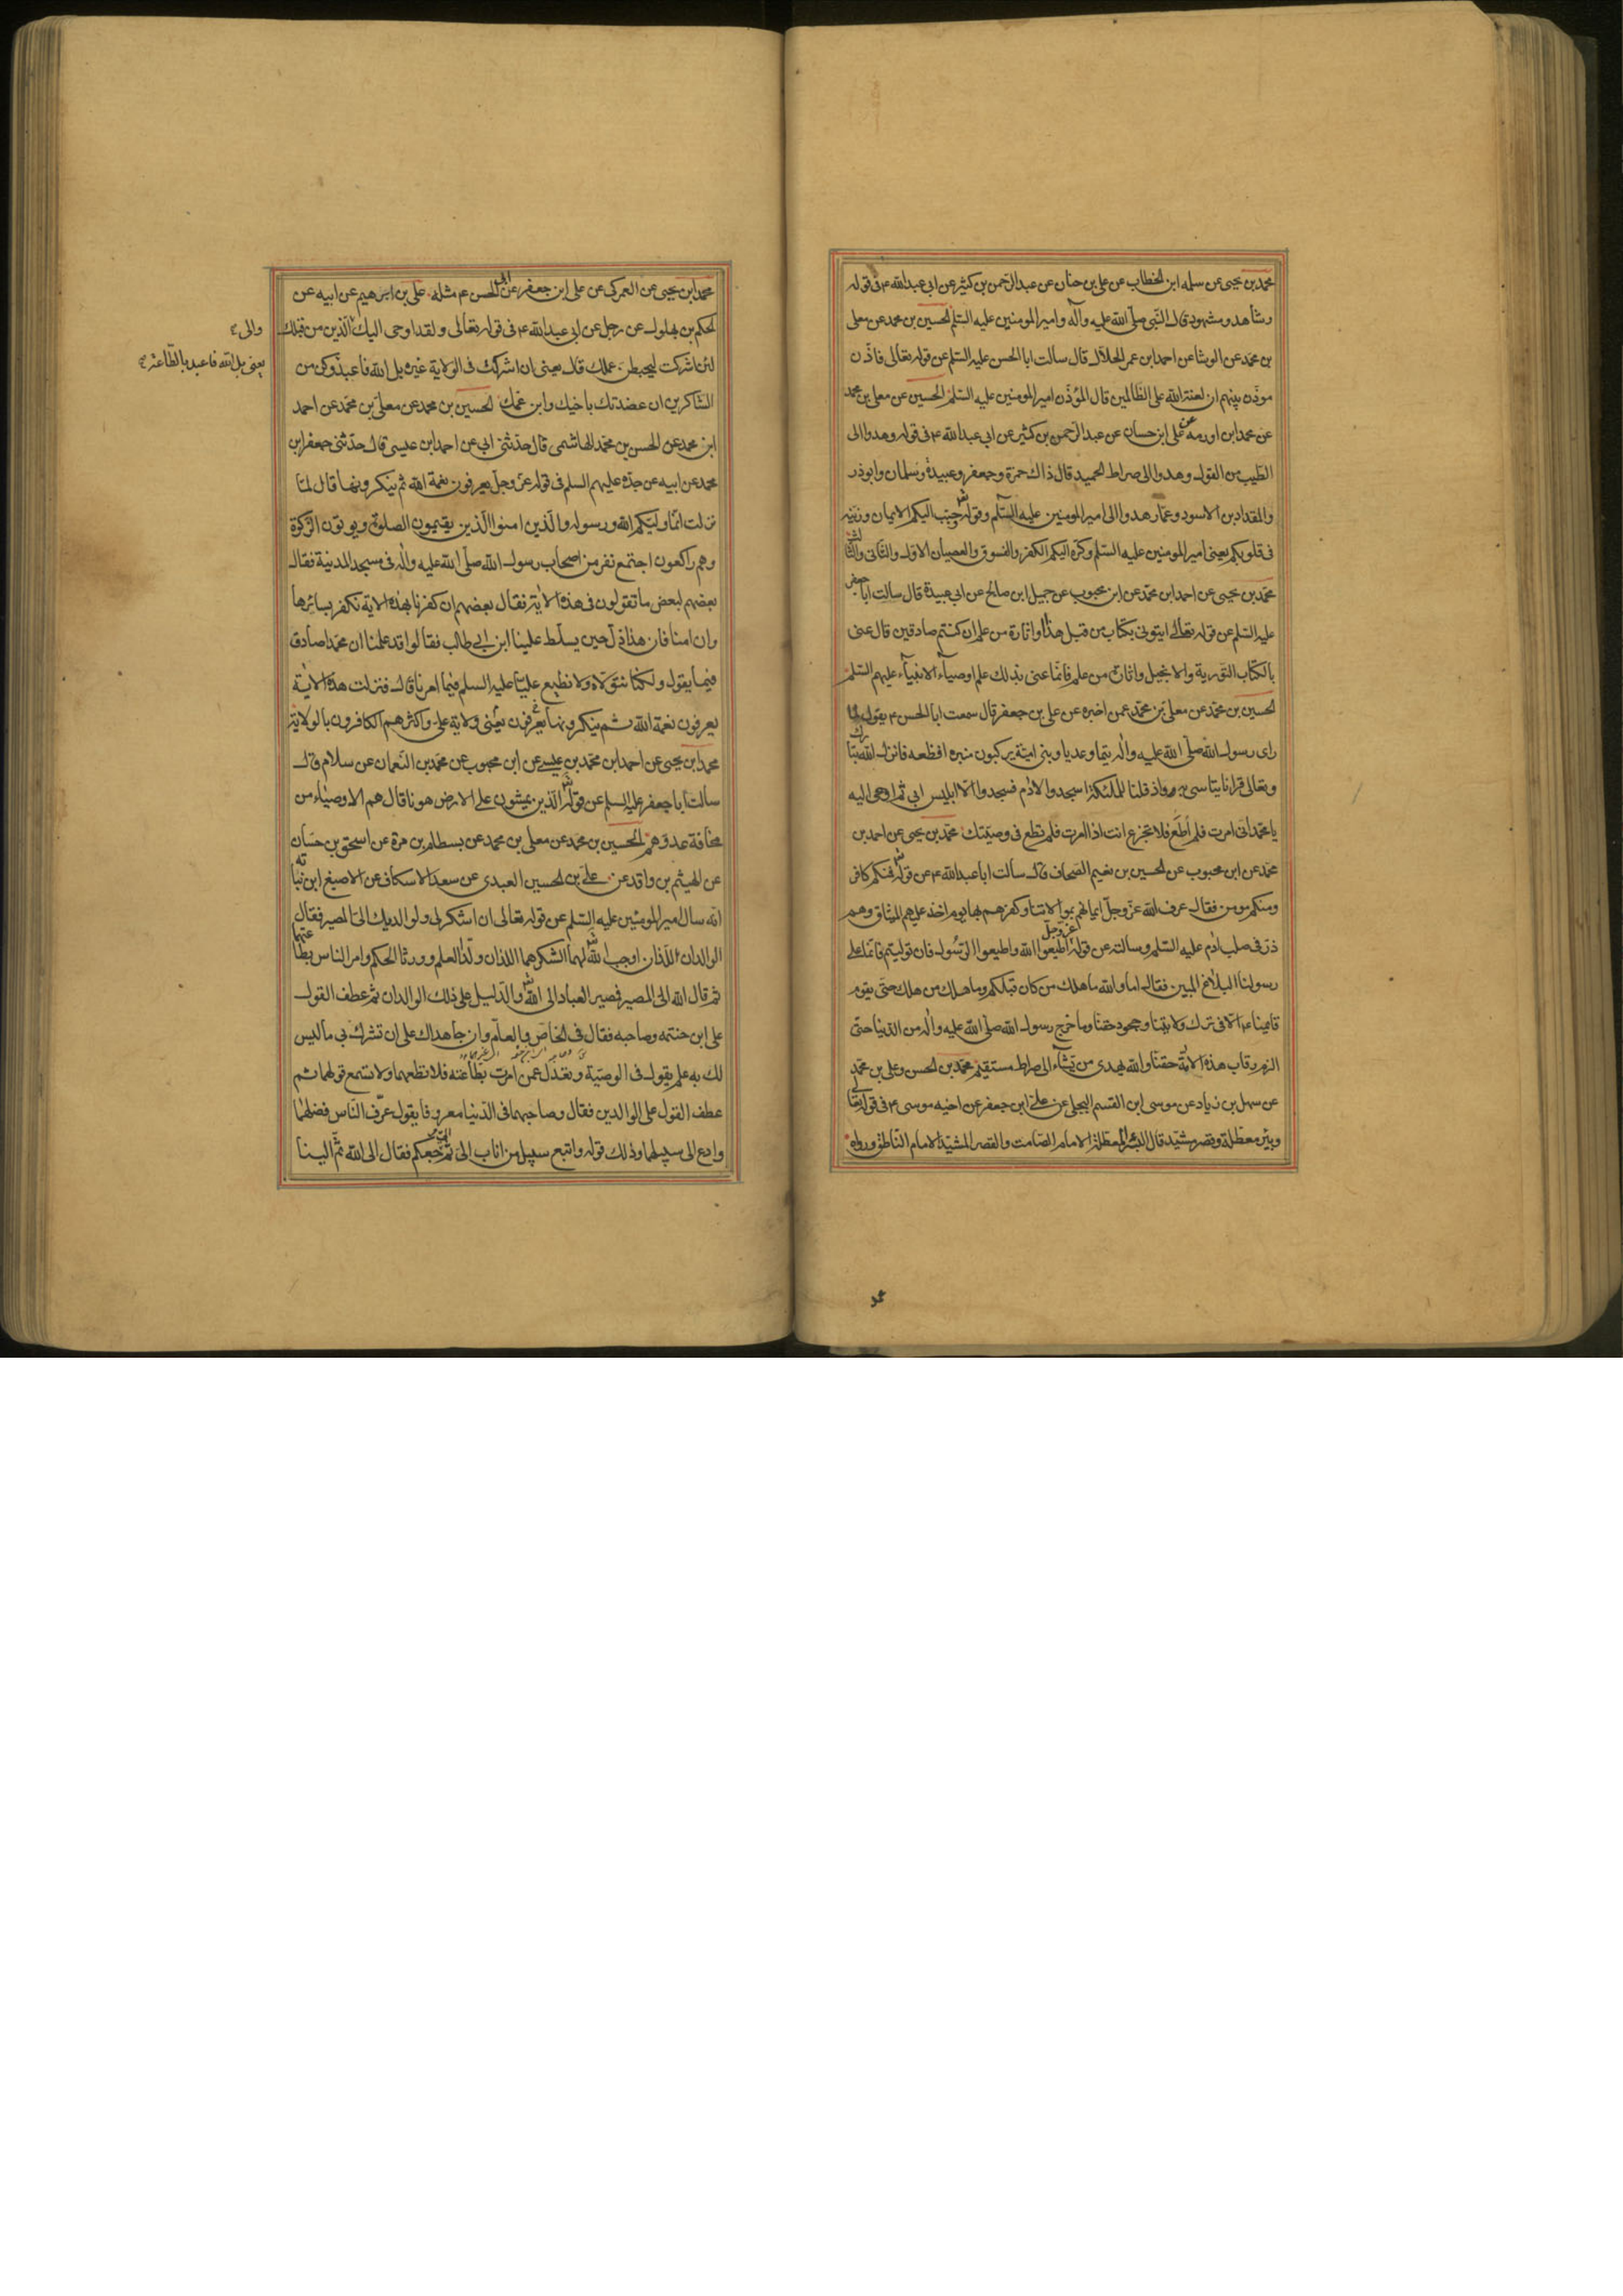 محمد بن يحيى عن سلمه ابن الخطاب عن على بن حسان عن عبد الرحمن بن كثير عن ابى عبد الله ع فى قوله
وشاهد ومشهود قال النبى صلى الله عليه وآله وامير المومنين عليه السلم الحسين بن محمد عن معلى
بن محمد عن الوشا عن احمد ابن عمر الحلال قال سالت ابا الحسن عليه السلم عن قوله تعالى فاذن
موذن بينهم ان لعنة الله على الظالمين قال المؤذن امير المومنين عليه السلم الحسين عن معلى بن محمد
عن محمد ابن اورمه عن على ابن حسان عن عبد الرحمن بن كثير عن ابى عبد الله ع فى قوله وهدوا الى
الطيب من القول وهدوا الى صراط الحميد قال ذاك حمزة وجعفر وعبيدة وسلمان وابوذر
والمقداد بن الاسود وعمار هدوا الى امير المومنين عليه السلم وقوله حبب اليكم الايمان وزينه
فى قلوبكم يعنى امير المومنين عليه السلم وكره اليكم الكفر والفسوق والعصيان الاول والثانى والثالث
محمد بن يحيى عن احمد ابن محمد عن ابن محبوب عن جميل ابن صالح عن ابى عبيدة قال سالت ابا جعفر
عليه السلم عن قوله تعالى ايتونى بكتاب من قبل هذا او اثارة من علم ان كنتم صادقين قال عنى
بالكتاب التورية والانجيل واثارة من علم فانما عنى بذلك علم اوصياء الانبياء عليهم السلم
الحسين بن محمد عن معلى بن محمد عمن اخبره عن على بن جعفر قال سمعت ابا الحسن ع يقول لما
راى رسول الله صلى الله عليه واله تيما وعديا وبنى امية يركبون منبره افظعه فانزل الله تبارك
وتعالى قرانا يتاسى به واذ قلنا للملئكة اسجدوا لادم فسجدوا الا ابليس ابى ثم اوحى اليه
يا محمد انى امرت فلم اطع فلا تجزع انت اذا امرت فلم تطع فى وصيتك محمد بن يحيى عن احمد بن
محمد عن ابن محبوب عن الحسين بن نعيم الصحاف قال سالت ابا عبد الله ع عن قوله فمنكم كافر
ومنكم مومن فقال عرف الله عز وجل ايمانهم بموالاتنا وكفرهم بها يوم اخذ عليهم الميثاق وهم
ذر فى صلب ادم عليه السلم وسالته عن قوله عز وجل اطيعوا الله واطيعوا الرسول فان توليتم فانما على
رسولنا البلاغ المبين فقال اما والله ما هلك من كان قبلكم وما هلك من هلك حتى يقوم
قايمنا ع الا فى ترك ولايتنا وجحود حقنا وما خرج رسول الله صلى الله عليه واله من الدنيا حتى
الزم رقاب هذه الامة حقنا والله يهدى من يشاء الى صراط مستقيم محمد بن الحسن وعلى بن محمد
عن سهل بن زياد عن موسى ابن القسم البجلى عن على ابن جعفر عن اخيه موسى ع فى قوله تعالى
وبئر معطلة وقصر مشيد قال البئر المعطلة الامام الصامت والقصر المشيد الامام الناطق ورواه
محمد ابن يحيى عن العمركى عن على ابن جعفر عن ابى الحسن ع مثله على بن ابرهيم عن ابيه عن
الحكم بن بهلول عن رجل عن ابى عبد الله ع فى قوله تعالى ولقد اوحى اليك الذين من قبلك
والى
لئن اشركت ليحبطن عملك قال يعنى ان اشركت فى الولاية غيره بل الله فاعبد وكن من
يعنى بل الله فاعبد بالطاعة
الشاكرين ان عضدتك باخيك وابن عمك الحسين بن محمد عن معلى بن محمد عن احمد
ابن محمد عن الحسن بن محمد الهاشمى قال حدثنى ابى عن احمد ابن عيسى قال حدثنى جعفر ابن
محمد عن ابيه عن جده عليهم السلم فى قوله عز وجل يعرفون نعمة الله ثم ينكرونها قال لما
نزلت انما وليكم الله ورسوله والذين امنوا الذين يقيمون الصلوة ويوتون الزكوة
وهم راكعون اجتمع نفر من اصحاب رسول الله صلى الله عليه واله فى مسجد المدينة فقال
بعضهم لبعض ما تقولون فى هذه الاية فقال بعضهم ان كفرنا بهذه الاية نكفر بسائرها
وان امنا فان هذا ذل حين يسلط علينا ابن ابى طالب فقالوا قد علمنا ان محمدا صادق
فيما يقول ولكنا نتولاه ولا نطيع عليا عليه السلم فيما امرنا قال فنزلت هذه الاية
يعرفون نعمة الله ثم ينكرونها يعرفون يعنى ولاية على واكثرهم الكافرون بالولاية
محمد ابن يحيى عن احمد ابن محمد بن عيسى عن ابن محبوب عن محمد بن النعمان عن سلام قال
سالت ابا جعفر عليه السلم عن قوله الذين يمشون على الارض هونا قال هم الاوصياء من
مخافة عدوهم الحسين بن محمد عن معلى بن محمد عن بسطام بن مرة عن اسحق بن حسان
عن الهيثم بن واقد عن على بن الحسين العبدى عن سعد الاسكاف عن الاصبغ ابن نباته
انه سال امير المومنين عليه السلم عن قوله تعالى ان اشكر لى ولوالديك الى المصير فقال
الوالدان اللذان اوجب الله لهما الشكر هما اللذان ولدا العلم وورثا الحكم وامر الناس بطاعتهما
ثم قال الله الى المصير فمصير العباد الى الله والدليل على ذلك الوالدان ثم عطف القول
على ابن حنتمه وصاحبه فقال فى الخاص والعام وان جاهداك على ان تشرك بى ما ليس
لك به علم يقول فى الوصية وتعدل عمن امرت بطاعته فلا تطعهما ولا تسمع قولهما ثم
عطف القول على الوالدين فقال وصاحبهما فى الدنيا معروفا يقول عرف الناس فضلهما
وادع الى سبيلهما وذلك قوله واتبع سبيل من اناب الى ثم الى مرجعكم فقال الى الله ثم الينا